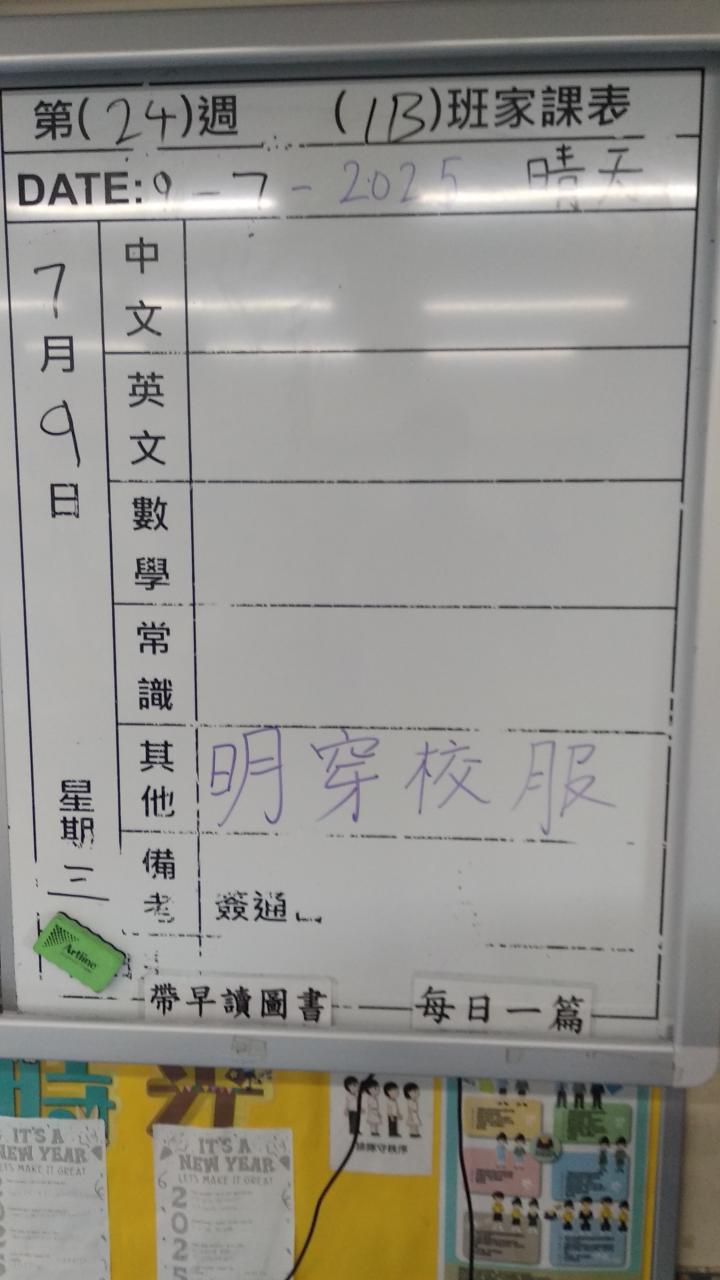 第(24)週 (1B)班家課表
DATE: 9-7-2025 晴天
7月9日 星期三
中文
英文
數學
常識
其他 明穿校服
備考 簽通
Artline
帶早讀圖書 每日一篇
排隊守秩序
IT'S A NEW YEAR
LET'S MAKE IT GREAT
202
IT'S A NEW YEAR
LET'S MAKE IT GREAT
2025